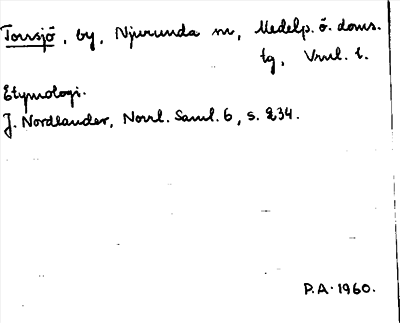 Torrsjö, by, Njurunda sn, Medelp. ö. doms.
tg, Vnrl. l.
Etymologi.
J. Nordlander, Norrl. Saml. 6, s. 234.
P.A. 1960.